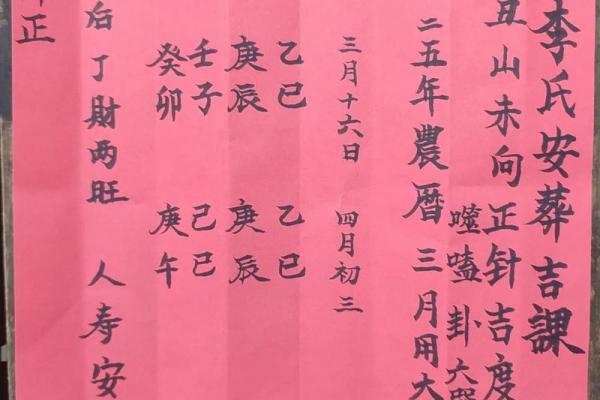 李氏安葬吉課
丑山未向正针吉度
噬嗑卦六
二五年農暦三月用大
三月十六日 四月初三
乙巳 乙巳
庚辰 庚辰
壬子 己巳
癸卯 庚午
后丁財两旺 人寿安
正